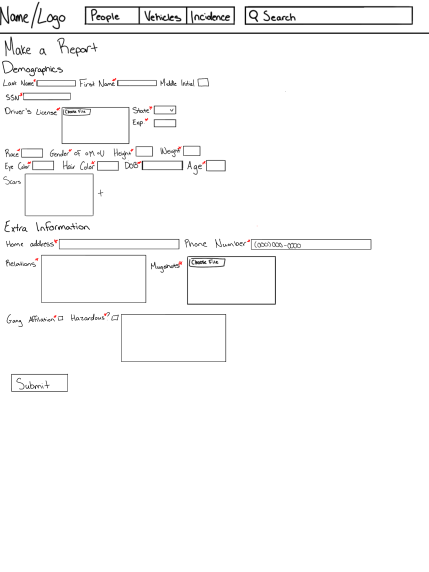 Name/Logo People Vehicles Incidence Search
Make a Report
Demographics
Last Name* First Name* Middle Initial
SSN*
Driver's License* Choose File State* v
Exp*
Race* Gender* oF oM oU Height* Weight*
Eye Color* Hair Color* DOB* Age*
Scars +
Extra Information
Home address* Phone Number* (000)000-0000
Relations* Mugshots* Choose File
Gang Affiliation* Hazardous*?
Submit